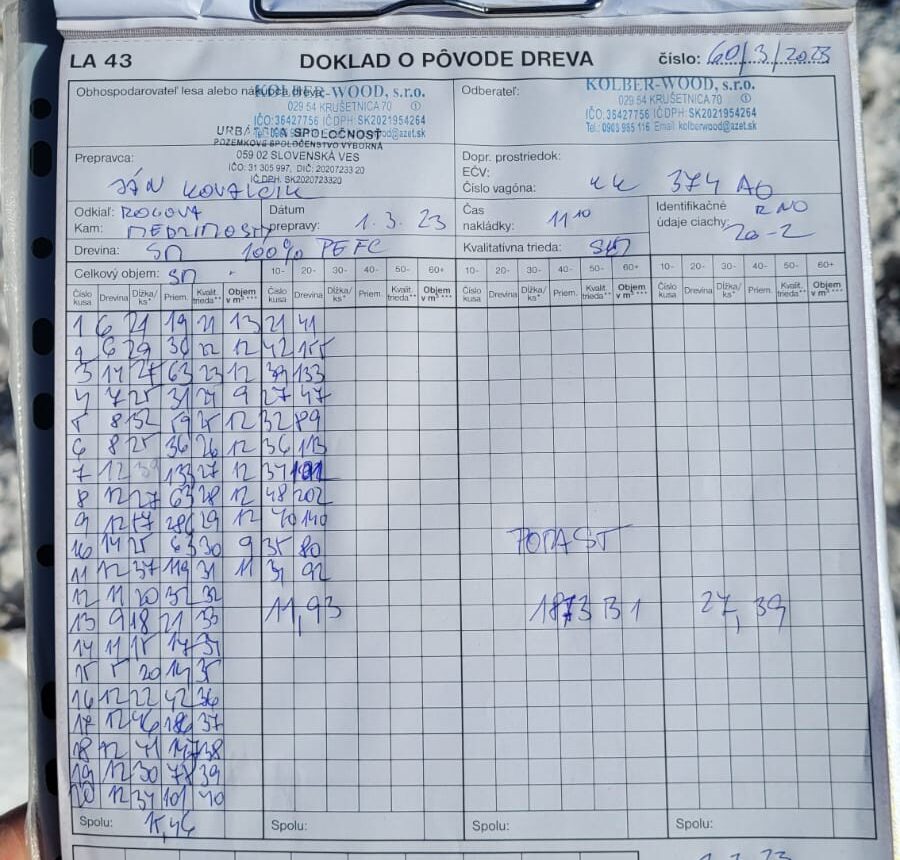 LA 43 DOKLAD O PÔVODE DREVA číslo: 60/3/2023
Obhospodarovateľ lesa alebo
KOLBER-WOOD, s.r.o.
029 54 KRUŠETNICA 70
IČO:36427756 IČ DPH: SK2021954264
URBÁRSKA SPOLOČNOSŤ
POZEMKOVÉ SPOLOČENSTVO VÝBORNÁ
059 02 SLOVENSKÁ VES
IČO: 31 305 997, DIČ: 2020723320
IČ DPH: SK2020723320
Odberateľ: KOLBER-WOOD, s.r.o.
029 54 KRUŠETNICA 70 ①
IČO:36427756 IČ DPH: SK2021954264
Tel.: 0903 985 116 Email: kolberwood@azet.sk
Prepravca:
JÁN KOVALČIK
Dopr. prostriedok:
EČV:
Číslo vagóna: KK 374 AG
Odkiaľ: ROGOVA
Kam:
Dátum
prepravy: 1. 3. 23
Čas
nakládky: 11 10
Identifikačné RNO
údaje ciachy: 20-2
Drevina: SM 100% PEFC
Kvalitatívna trieda:
Celkový objem: SM
10- 20- 30- 40- 50- 60+ 10- 20- 30- 40- 50- 60+ 10- 20- 30- 40- 50- 60+
Číslo kusa Drevina Dĺžka/ks* Priem. Kvalit. trieda** Objem v m³ *** Číslo kusa Drevina Dĺžka/ks* Priem. Kvalit. trieda** Objem v m³ *** Číslo kusa Drevina Dĺžka/ks* Priem. Kvalit. trieda** Objem v m³ *** Číslo kusa Drevina Dĺžka/ks* Priem. Kvalit. trieda** Objem v m³ ***
1 6 21 19 21 13 21 41
2 6 29 36 22 12 42 155
3 14 27 63 23 12 39 133
4 7 25 31 24 9 27 47
5 8 32 59 25 12 32 89
6 8 25 36 26 12 36 113
7 12 39 133 27 12 34
8 12 27 63 28 12 48 202
9 12 29 12 40 140
10 14 25 63 30 9 35 80
11 12 37 119 31 11 92
12 11 20 32 32
13 9 18 21 33
11,93 27,39
14 11 15 17 34
15 5 20 14 35
16 12 22 42 36
17 12 46 186 37
18 12 41 147 38
19 12 30 78 39
20 12 34 101 40
Spolu: 15,46 Spolu: Spolu: Spolu: